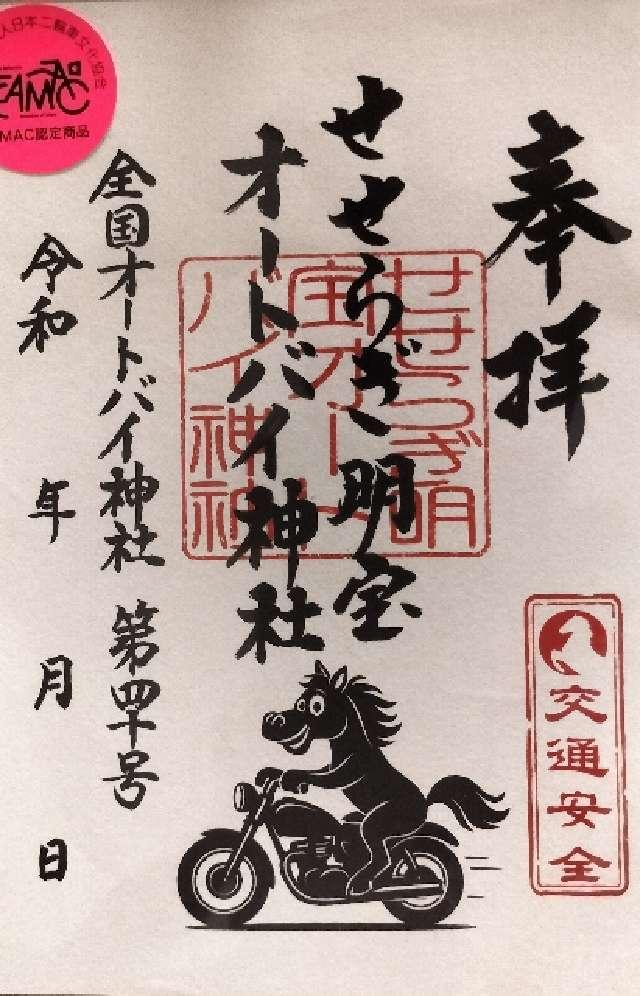 奉拝
せせらぎ明宝
オートバイ神社
全国オートバイ神社 第四十号
令和 年 月 日
せせらぎ明
宝オート
バイ神社
交通安全
人日本二輪車文化協会
MAC認定商品